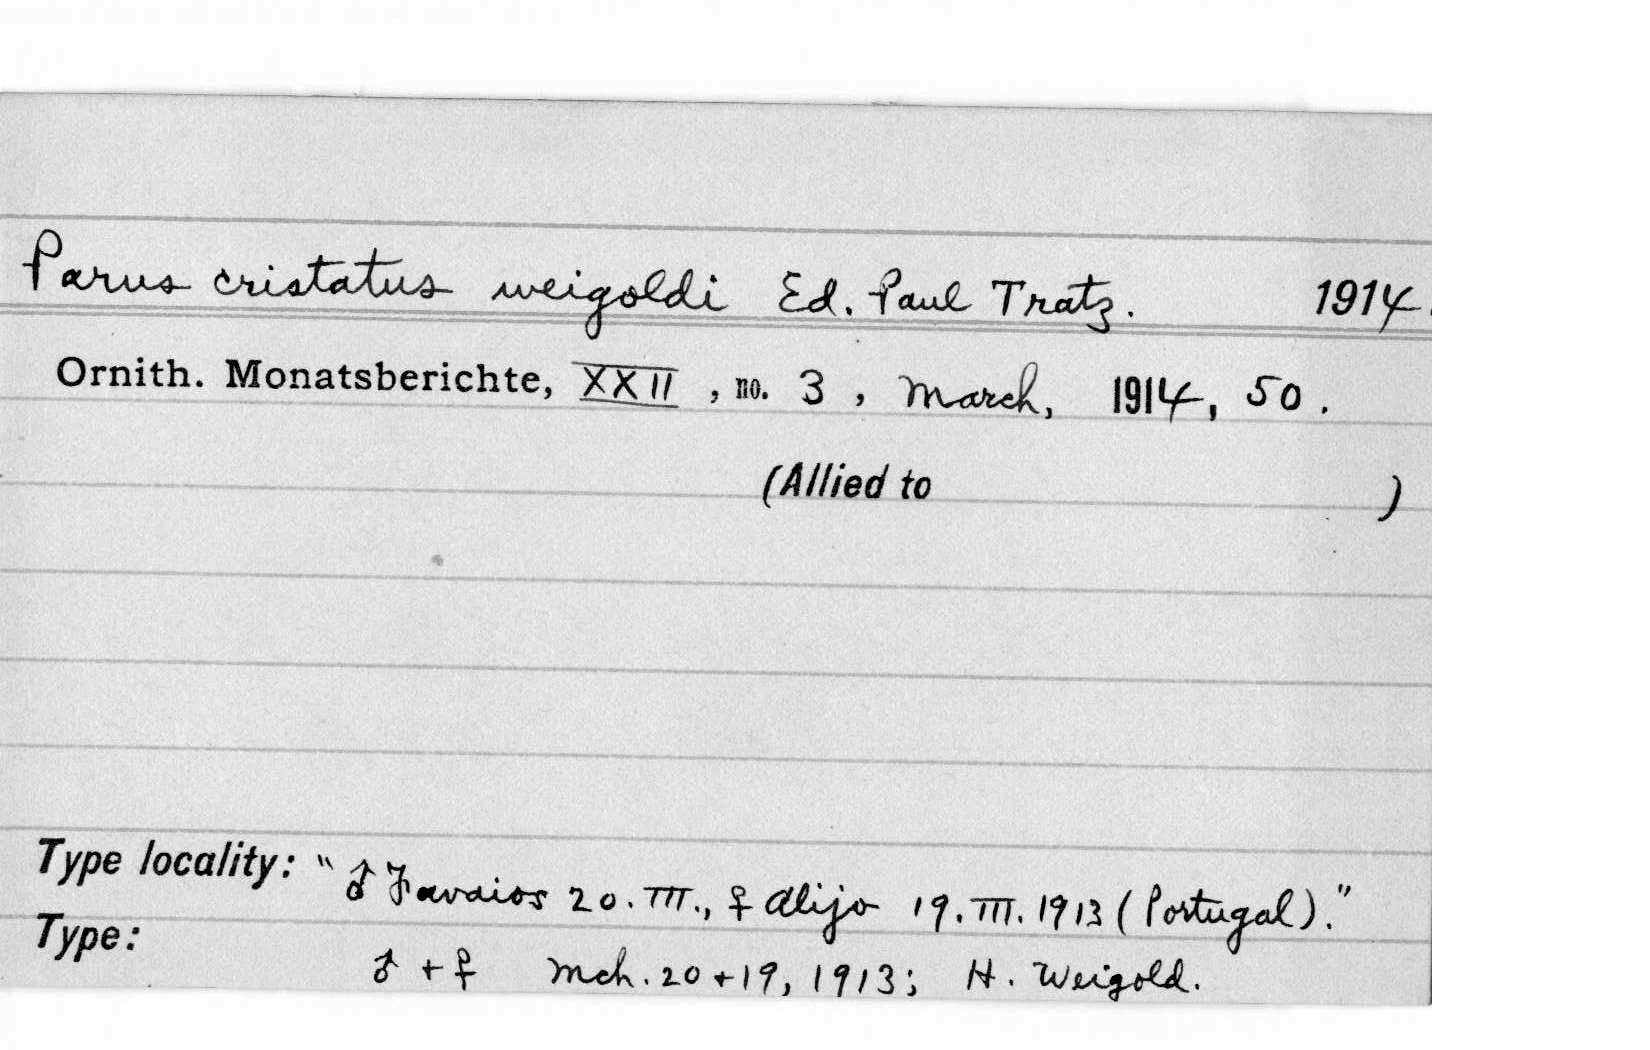 Parus cristatus weigoldi Ed. Paul Tratz. 1914.
Ornith. Monatsberichte, XXII, no. 3, March, 1914, 50.
(Allied to )
Type locality: "♂ Favaios 20. III., ♀ Alijo 19. III. 1913 (Portugal)."
Type:
♂ + ♀ Mch. 20 + 19, 1913; H. Weigold.